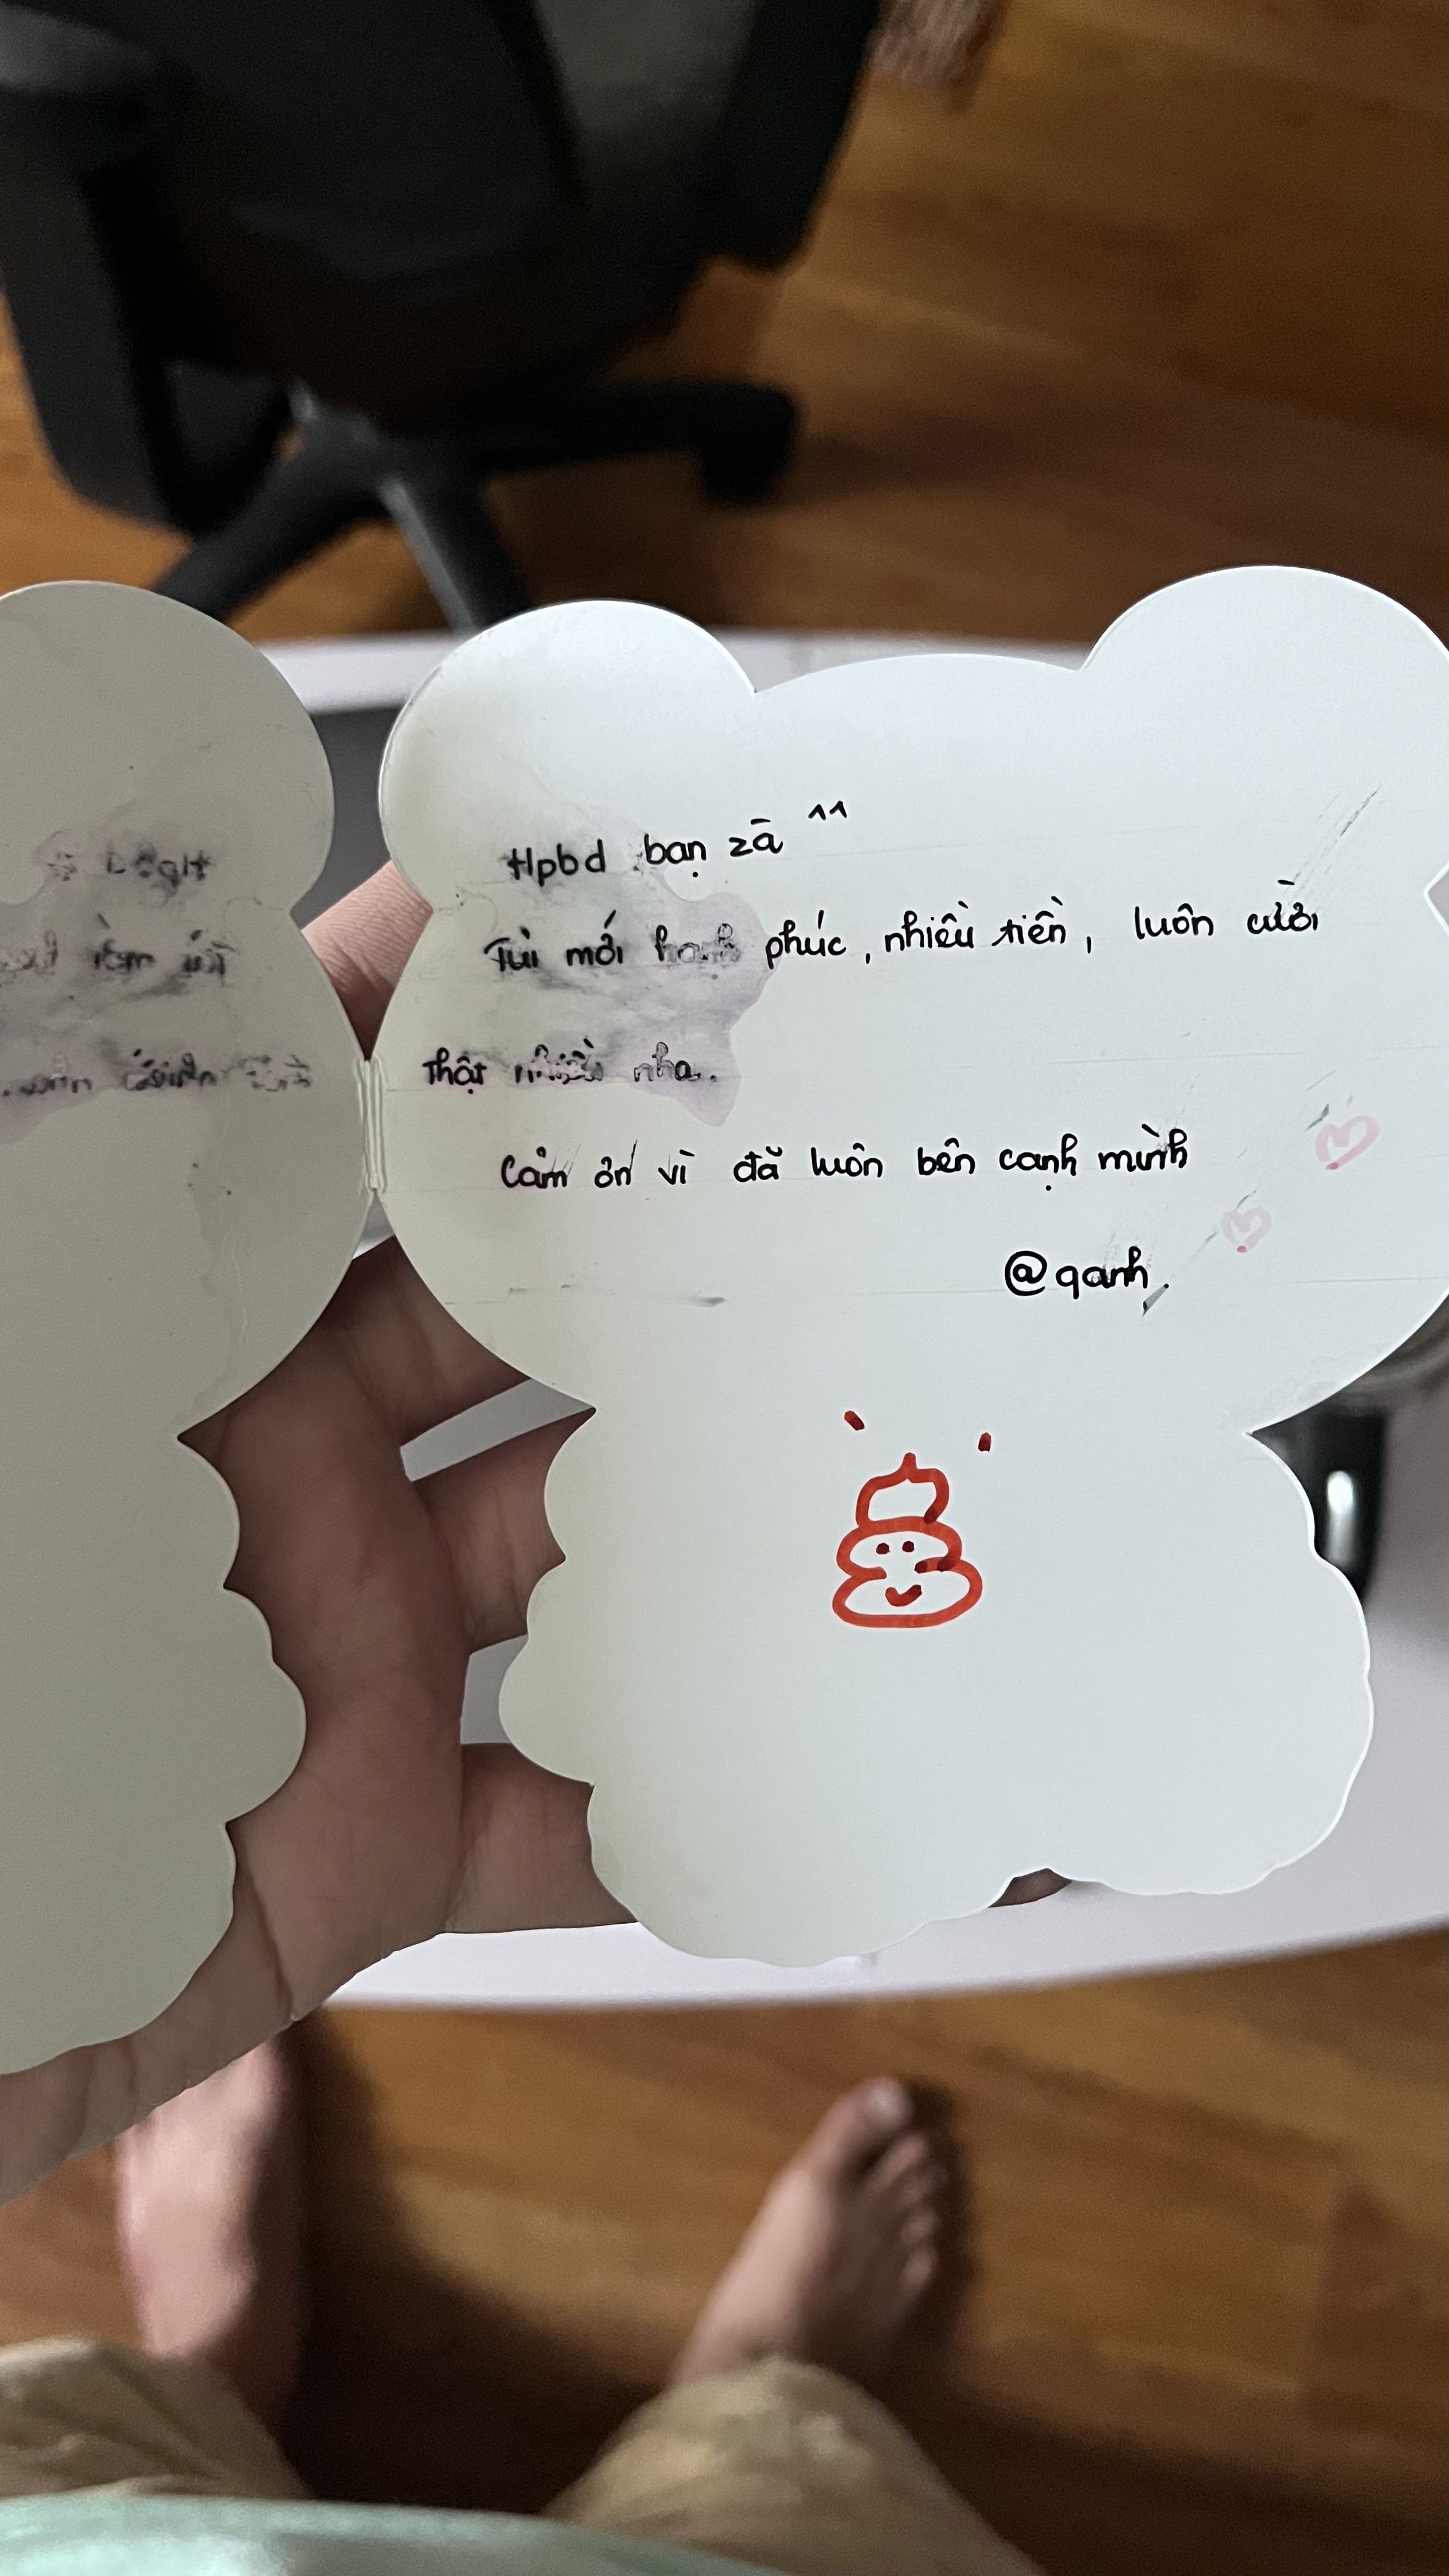 Hpbd bạn zà ^^
Tủi mới hạnh phúc, nhiều tiền, luôn cười
thật nhiều nha.
Cảm ơn vì đã luôn bên cạnh mình
@qanh.